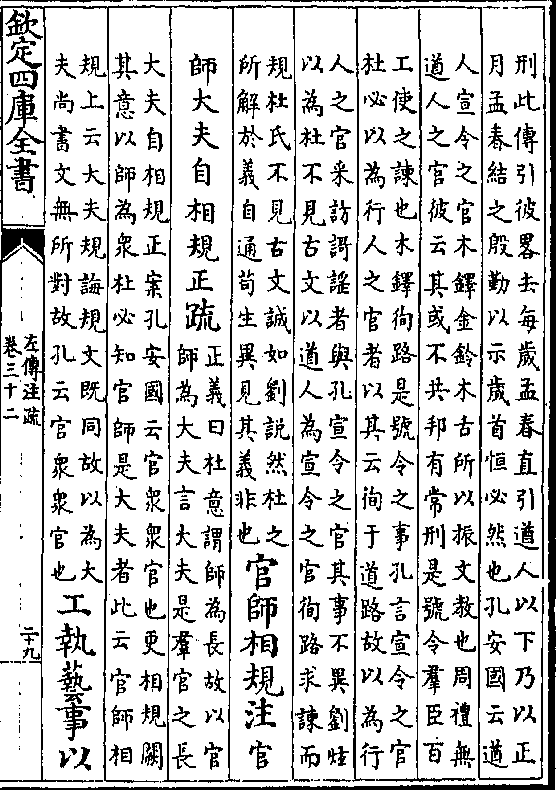 刑此傳引彼畧去每歲孟春直引遒人以下乃以正
月孟春結之殷勤以示歲首恒必然也孔安國云遒
人宣令之官木鐸金鈴木舌所以振文教也周禮無
遒人之官彼云其或不共邦有常刑是號令羣臣百
工使之諫也木鐸徇路是號令之事孔言宣令之官
杜必以為行人之官者以其云徇于道路故以為行
人之官采訪謌謠者與孔宣令之官其事不異劉炫
以為杜不見古文以遒人為宣令之官徇路求諫而
規杜氏不見古文誠如劉説然杜之
所解於義自通苟生異見其義非也
官師相規注官
師大夫自相規正疏
正義曰杜意謂師為長故以官
師為大夫言大夫是羣官之長
大夫自相規正案孔安國云官衆衆官也更相規闕
其意以師為衆杜必知官師是大夫者此云官師相
規上云大夫規誨規文既同故以為大
夫尚書文無所對故孔云官衆衆官也
工執藝事以
欽定四庫全書
左傳注疏
卷三十二
二十九